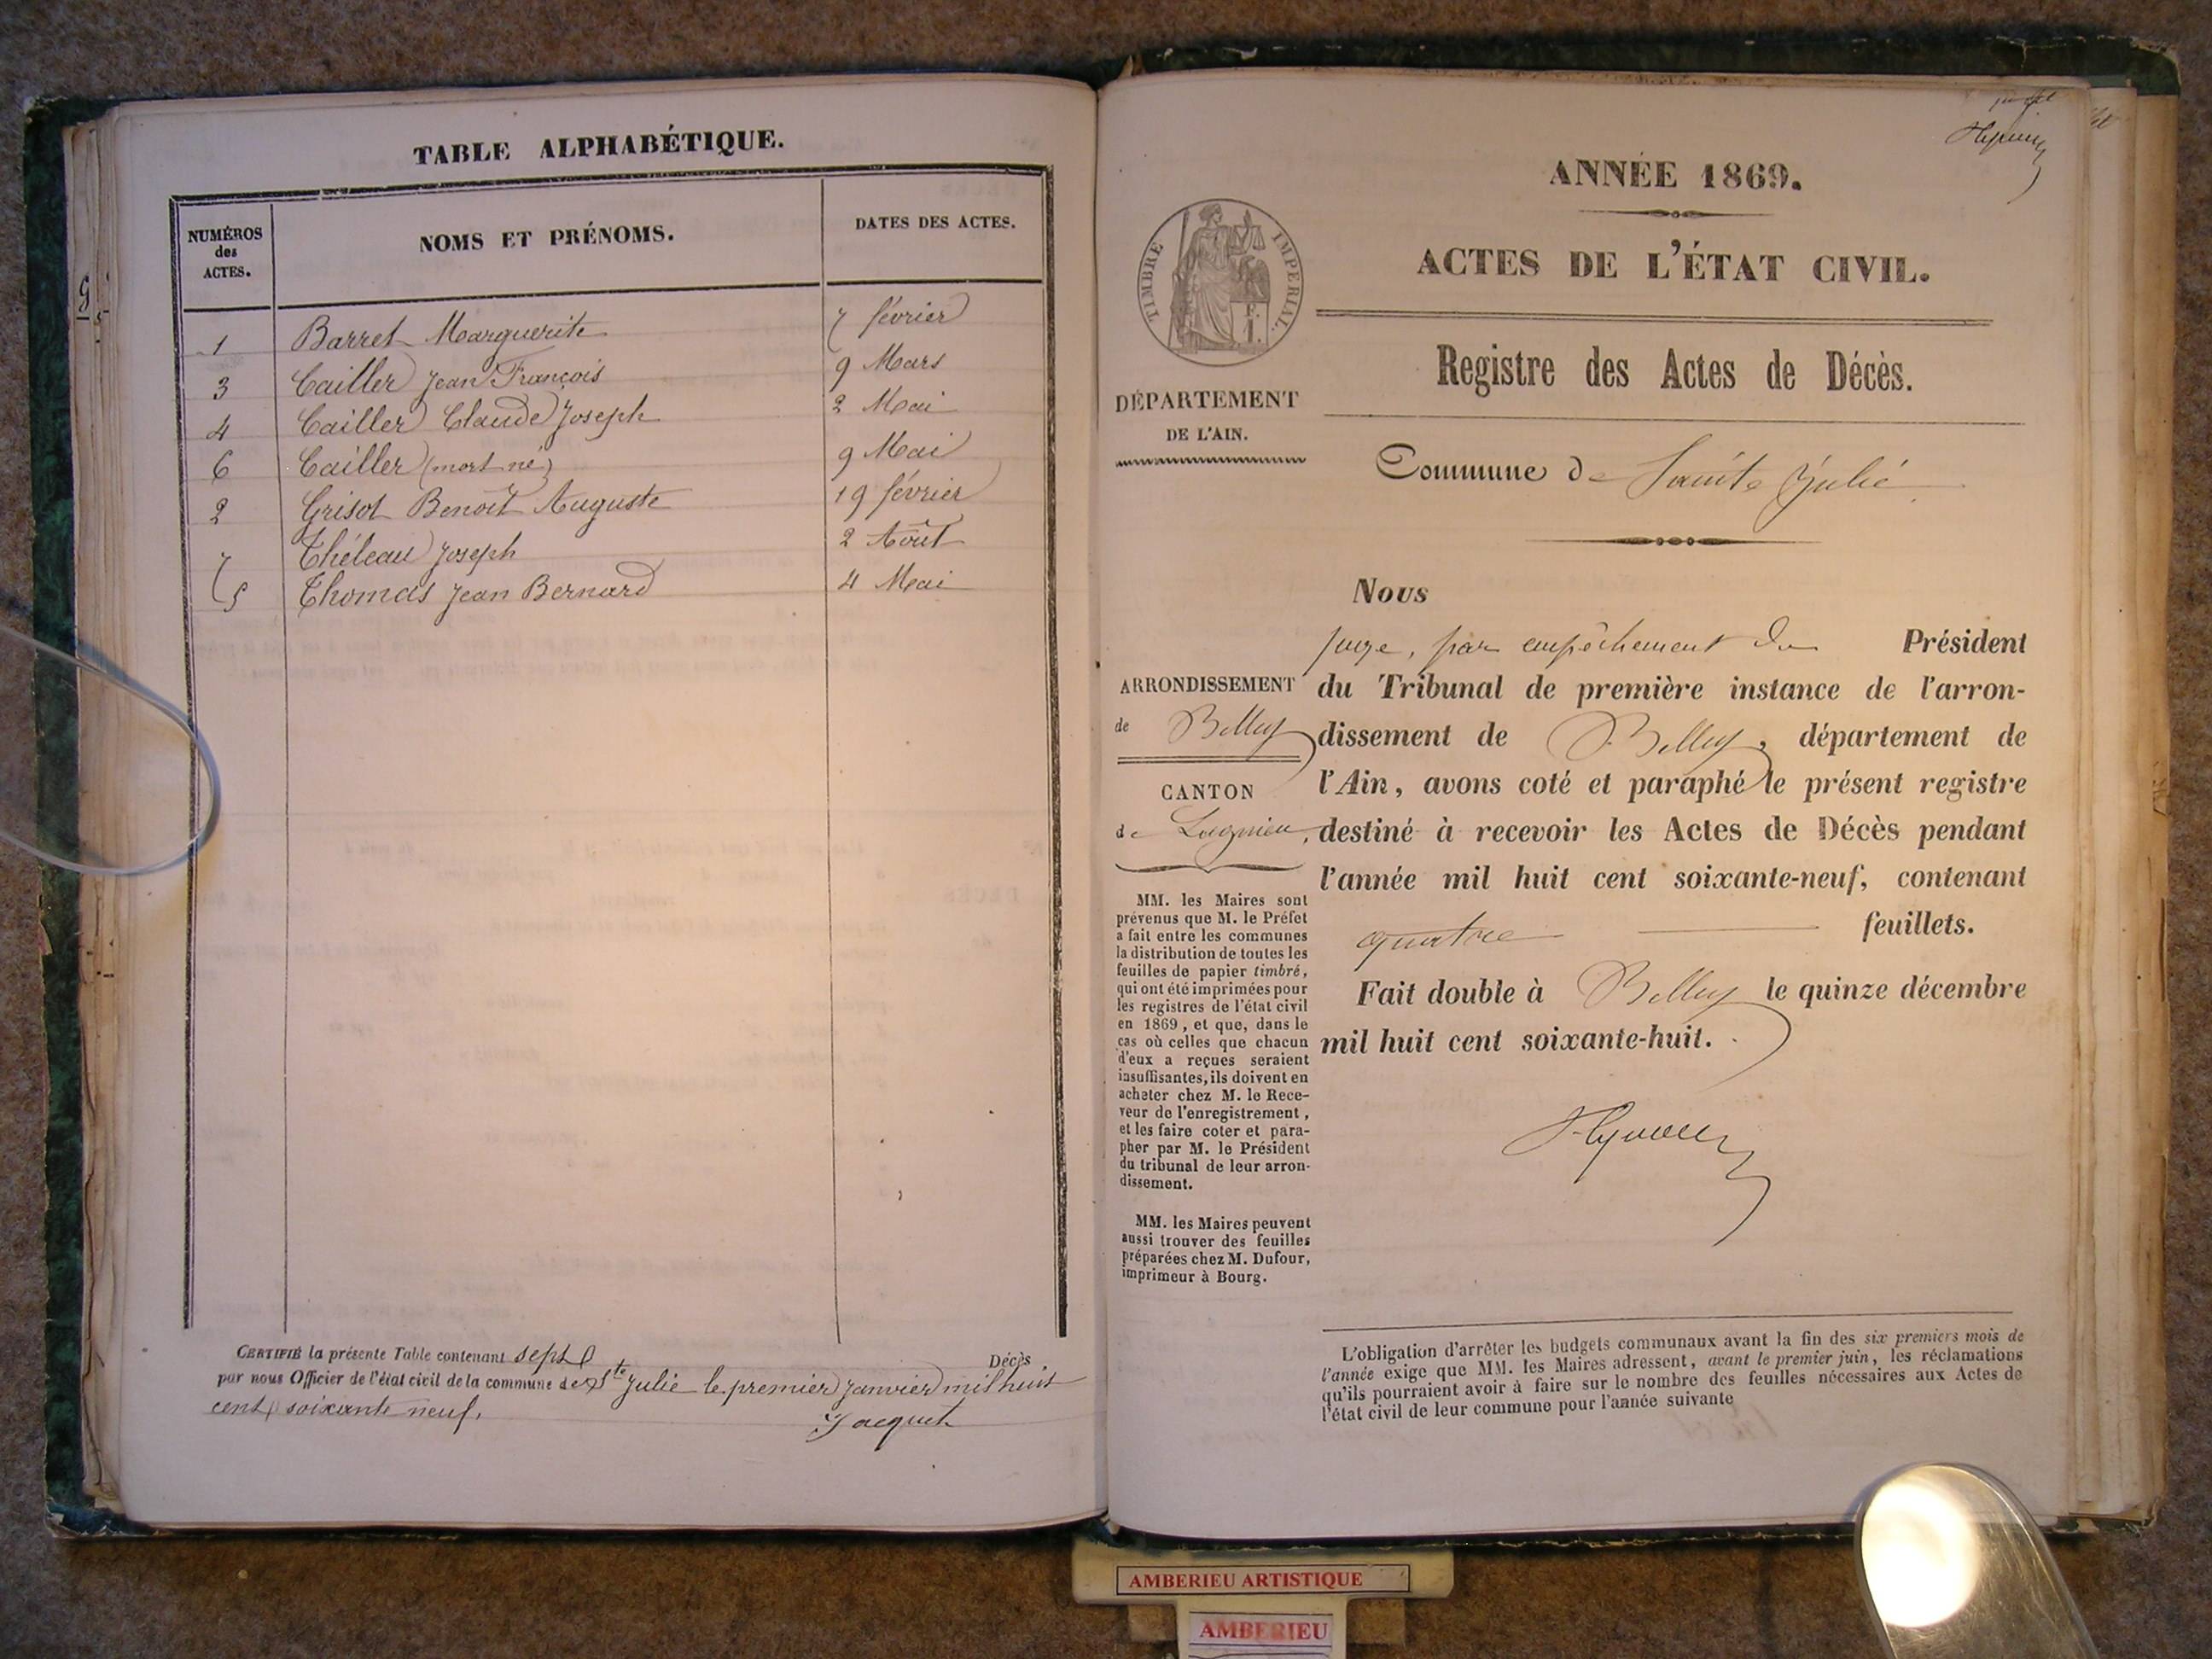 TABLE ALPHABÉTIQUE.
NUMÉROS
des
ACTES.
NOMS ET PRÉNOMS.
DATES DES ACTES.
1 Barret Marguerite 7 février
3 Cailler Jean François 9 Mars
4 Cailler Claude Joseph 2 Mai
6 Cailler (mort né) 9 Mai
2 Grisot Benoît Auguste 19 février
7 Théleau Joseph 2 Août
5 Thomas Jean Bernard 4 Mai
CERTIFIÉ la présente Table contenant sept Décès
par nous Officier de l'état civil de la commune de Ste Julie le premier janvier mil huit
cent soixante neuf.
Jacquet
ANNÉE 1869.
ACTES DE L'ÉTAT CIVIL.
Registre des Actes de Décès.
TIMBRE IMPERIAL.
DÉPARTEMENT
DE L'AIN.
Commune de Sainte Julie
Nous
juge, par empêchement du Président
du Tribunal de première instance de l'arron-
dissement de Belley, département de
l'Ain, avons coté et paraphé le présent registre
destiné à recevoir les Actes de Décès pendant
l'année mil huit cent soixante-neuf, contenant
quatre feuillets.
Fait double à Belley le quinze décembre
mil huit cent soixante-huit.
ARRONDISSEMENT
de Belley
CANTON
de Lagnieu,
MM. les Maires sont
prévenus que M. le Préfet
a fait entre les communes
la distribution de toutes les
feuilles de papier timbré,
qui ont été imprimées pour
les registres de l'état civil
en 1869, et que, dans le
cas où celles que chacun
d'eux a reçues seraient
insuffisantes, ils doivent en
acheter chez M. le Rece-
veur de l'enregistrement,
et les faire coter et para-
pher par M. le Président
du tribunal de leur arron-
dissement.
MM. les Maires peuvent
aussi trouver des feuilles
préparées chez M. Dufour,
imprimeur à Bourg.
L'obligation d'arrêter les budgets communaux avant la fin des six premiers mois de
l'année exige que MM. les Maires adressent, avant le premier juin, les réclamations
qu'ils pourraient avoir à faire sur le nombre des feuilles nécessaires aux Actes de
l'état civil de leur commune pour l'année suivante
AMBERIEU ARTISTIQUE
AMBERIEU